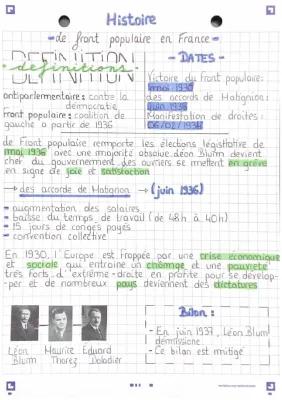 Histoire
- de front populaire en France -
DEFINITION
definitions
- DATES -
antiparlementaire: contre la
démocratie
Front populaire: coalition de
gauche à partir de 1936
Victoire du Front populaire:
mai 1936
des accords de Matignon:
juin 1936
Manifestation de droites:
06/02/1934
de Front Populaire remporte les élections législative de
mai 1936 avec une majorité absolue. Léon Blum devient
chef du gouvernement des ouvriers se mettent en grève
en signe de joie et satisfaction
→ des accords de Matignon → (juin 1936)
- augmentation des salaires
- baisse du temps de travail (de 48h à 40h)
- 15 jours de congés payés
- convention collective
En 1930, l'Europe est frappée par une crise économique
et sociale qui entraine un chômage et une pauvreté
très forts. d'extrême-droite en profite pour se dévelop-
per et de nombreux pays deviennent des dictatures
Léon Blum
Maurice Thorez
Edouard Daladier
Bilan:
- En juin 1937, Léon Blum
démissionne.
- Ce bilan est mitigé